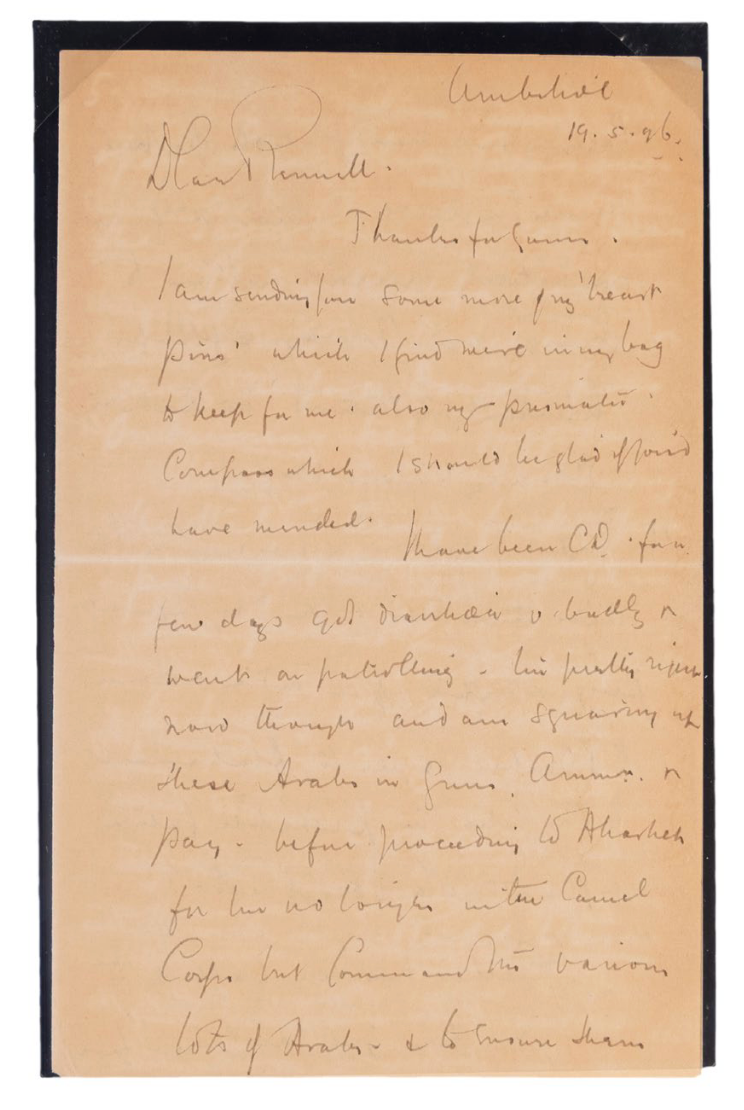 Ambukol
19.5.96.
Dear Rennell.
Thanks for yours.
I am sending you some more of my 'breast
pins' which I find were in my bag
to keep for me. also my prismatic
Compass which I should be glad if you'd
have mended.
I have been CD. for a
few days got diarrhœa v. badly &
went on patrolling - I'm pretty right
now though and am squaring up
these Arabs in Guns, Ammn. &
pay - before proceeding to Akasheh
for I'm no longer in the Camel
Corps but Command the various
lots of Arabs - & to ensure them